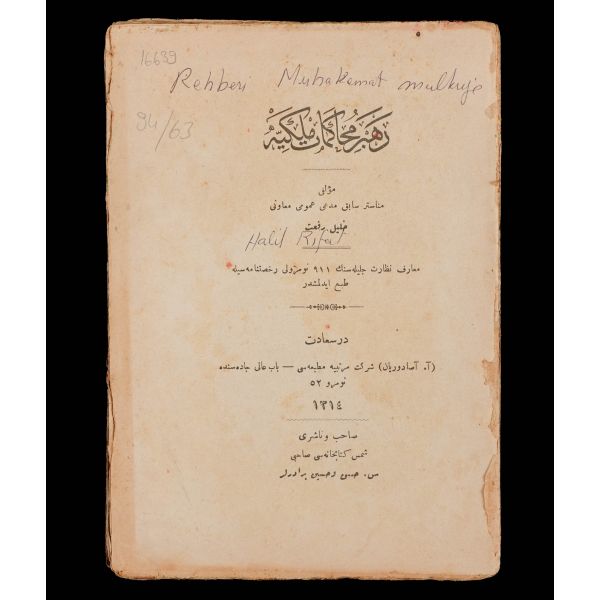 16639
Rehberi Muhakemat mulkiye
94/63
رهبر محاكمات ملكيه
مؤلفى
مناستر سابق مدعى عمومى معاونى
خليل رفعت
Halil Rifat
معارف نظارت جليله سنك ٩١١ نومرولى رخصتنامه سيله
طبع ايدلمشدر
درسعادت
(آ. آصادوريان) شركت مرتبيه مطبعه سى — باب عالى جاده سنده
نومرو ٥٢
١٣١٤
صاحب و ناشرى
شمس كتابخانه سى صاحبى
س. حسنى وحسين برادرلر